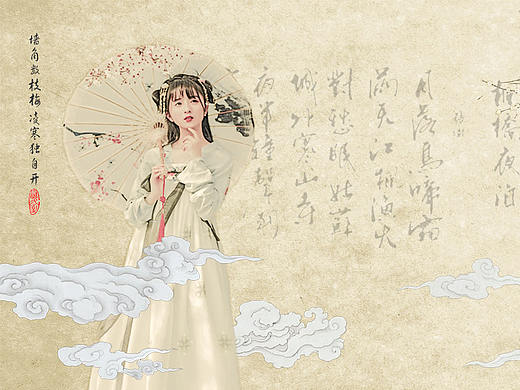 墙角数枝梅 凌寒独自开
枫桥夜泊
张继
月落乌啼霜
满天江枫渔火
对愁眠姑苏
城外寒山寺
夜半钟声到